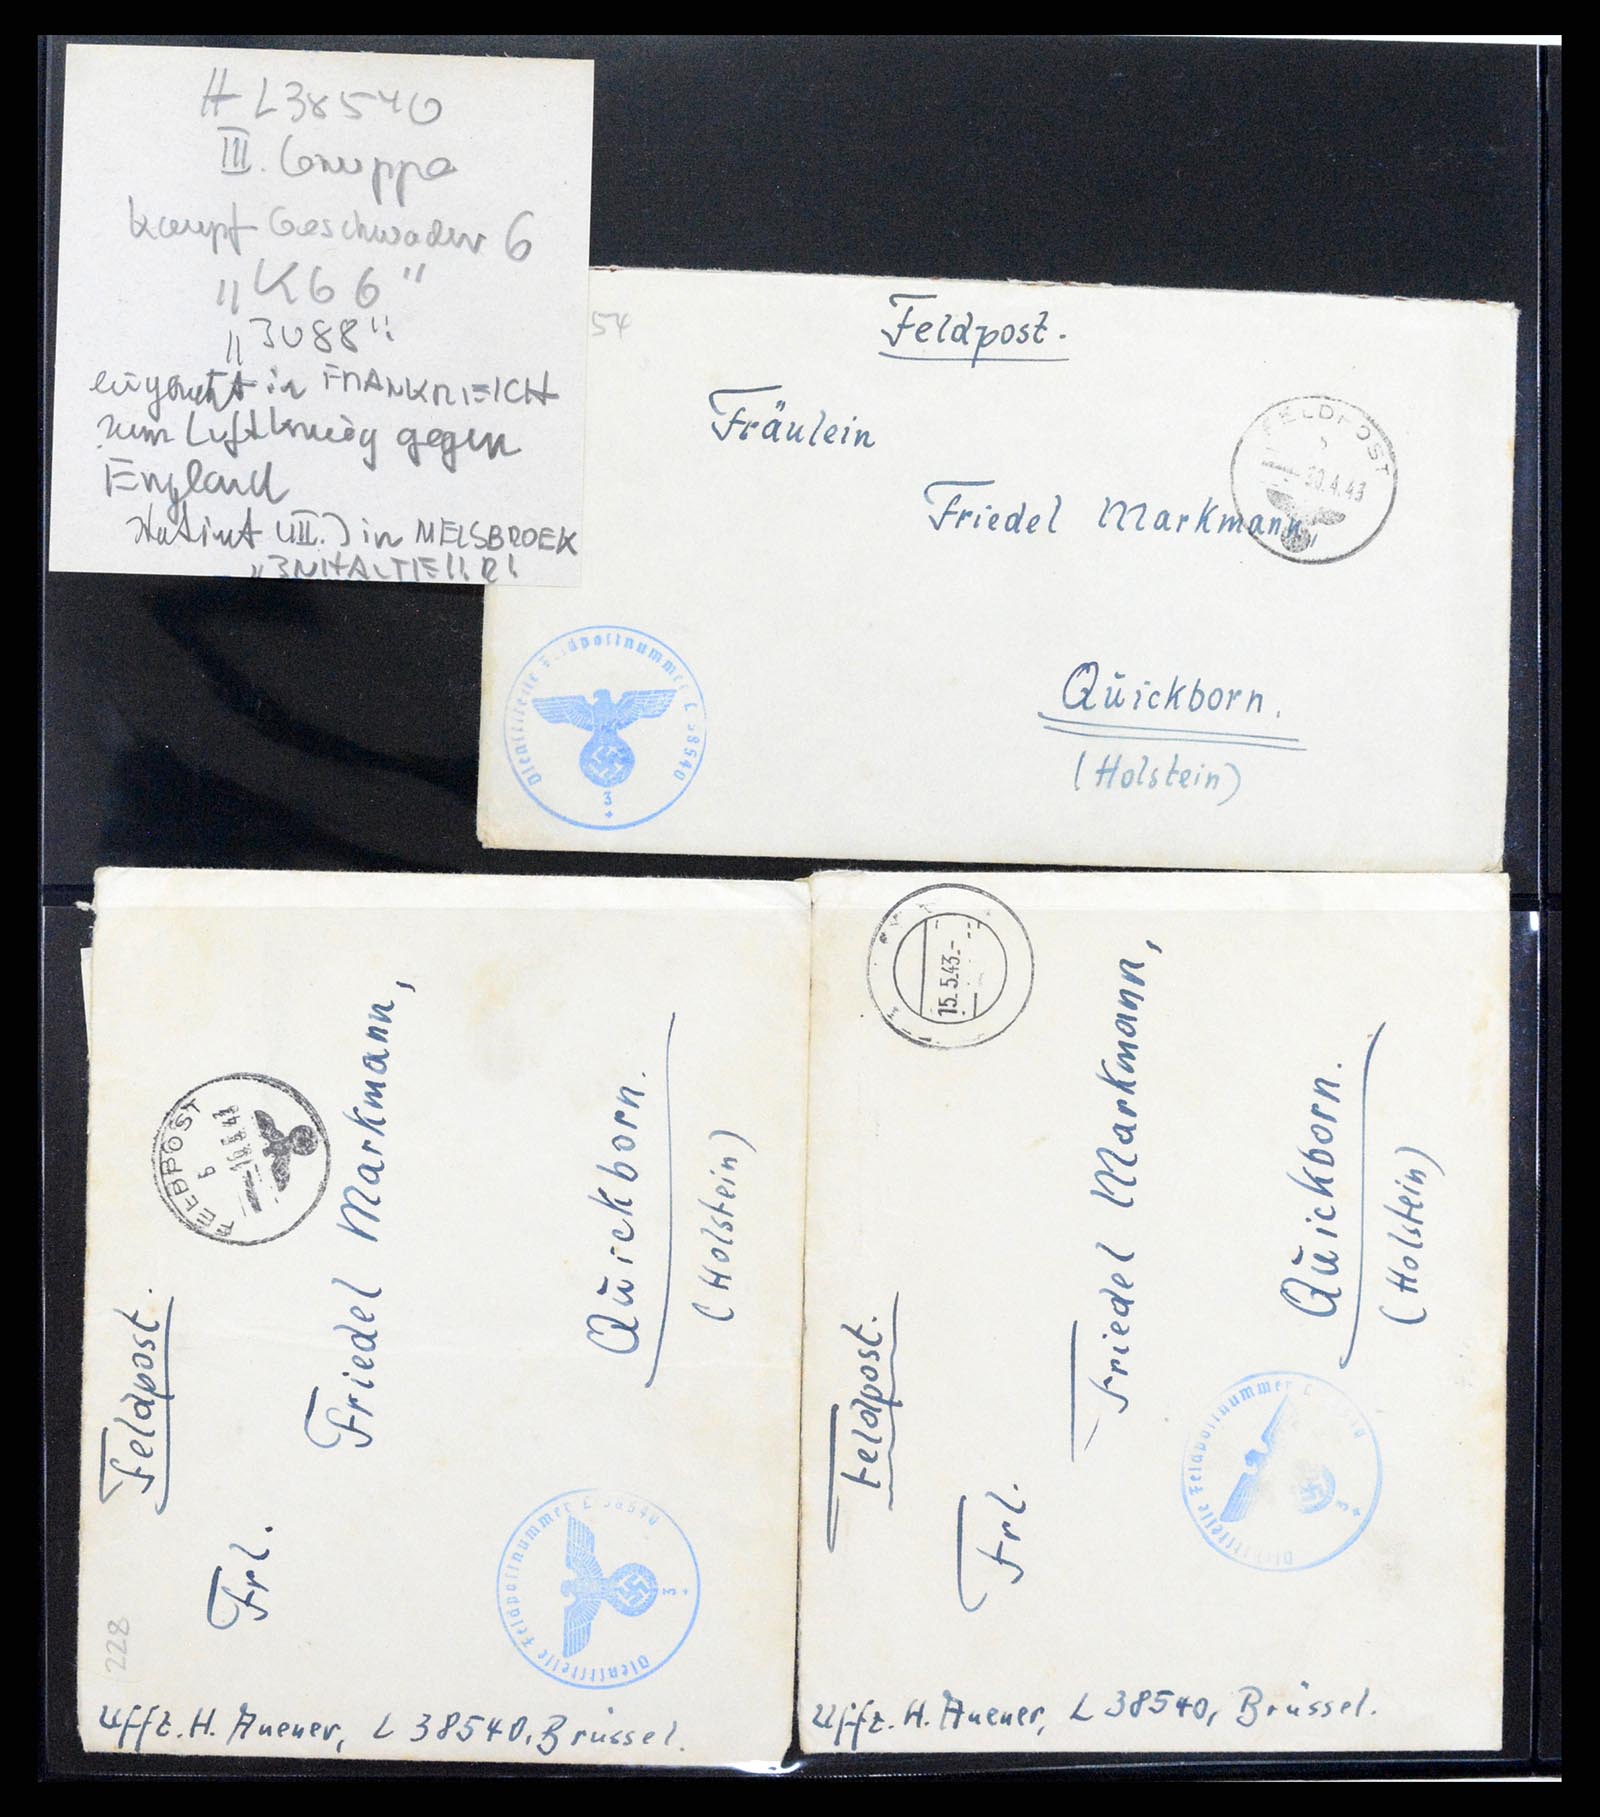 L38540
III. Gruppe
Kampf Geschwader 6
"KG 6"
"JU88"
eingesetzt in FRANKREICH
zum Luftkrieg gegen
England
(III.) in MELSBROEK
54
Feldpost.
Fräulein
Friedel Markmann,
Quickborn.
(Holstein)
FELDPOST
b
30.4.43
Dienststelle Feldpostnummer L 38540
3
Feldpost.
Frl.
Friedel Markmann,
Quickborn.
(Holstein)
FELDPOST
b
Dienststelle Feldpostnummer L 38540
3
228
Uffz. H. Auener, L 38540, Brüssel.
15.5.43.-
Feldpost.
Frl.
Friedel Markmann,
Quickborn.
(Holstein)
Dienststelle Feldpostnummer L
3
Uffz. H. Auener, L 38540, Brüssel.